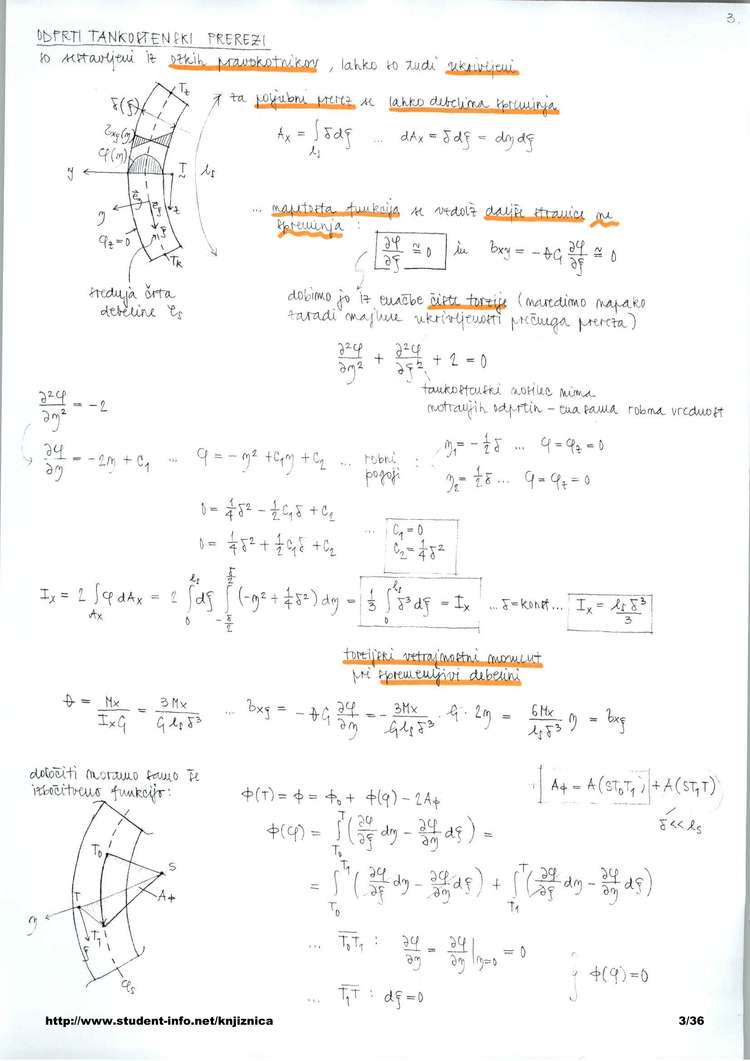 3.
ODPRTI TANKOSTENSKI PREREZI
so sestavljeni iz ozkih pravokotnikov, lahko so tudi ukrivljeni
za poljubni prerez se lahko debelina spreminja
A_x = ∫_{l_s} δdξ ... dA_x = δdξ = dηdξ
T_z
δ(ξ)
τ_xy(η)
φ(η)
y
T
l_s
z
η
ξ
φ_z=0
T_k
srednja črta
debeline l_s
... napetostna funkcija se vzdolž daljše stranice ne
spreminja :
∂φ/∂ξ ≅ 0 in σ_xy = -θG ∂φ/∂ξ ≅ 0
dobimo jo iz enačbe čiste torzije (naredimo napako
zaradi majhne ukrivljenosti prečnega prereza)
∂²φ/∂η² + ∂²φ/∂ξ² + 2 = 0
tankostenski nosilec nima
notranjih odprtin - ena sama robna vrednost
∂²φ/∂η² = -2
∂φ/∂η = -2η + C₁ ... φ = -η² + C₁η + C₂ ... robni pogoji : η₁ = -½δ ... φ = φ_z = 0
η₂ = ½δ ... φ = φ_z = 0
0 = ¼δ² - ½C₁δ + C₂
0 = ¼δ² + ½C₁δ + C₂
... C₁ = 0
C₂ = ¼δ²
I_x = 2 ∫_{A_x} φ dA_x = 2 ∫_0^{l_s} dξ ∫_{-δ/2}^{δ/2} (-η² + ¼δ²) dη = ⅓ ∫_0^{l_s} δ³dξ = I_x ... δ=konst... I_x = l_s δ³/3
torzijski vztrajnostni moment
pri spremenljivi debelini
θ = M_x/(I_x G) = 3M_x/(G l_s δ³) ... σ_xξ = -θG ∂φ/∂η = -3M_x/(G l_s δ³) · G · 2η = 6M_x/(l_s δ³) η = σ_xξ
določiti moramo samo še
izbočitveno funkcijo:
Φ(T) = Φ = Φ₀ + Φ(φ) - 2A_Φ
A_Φ = A(ST₀T₁) + A(ST₁T)
δ << l_s
Φ(φ) = ∫_{T₀}^{T} (∂φ/∂ξ dη - ∂φ/∂η dξ) =
= ∫_{T₀}^{T₁} (∂φ/∂ξ dη - ∂φ/∂η dξ) + ∫_{T₁}^{T} (∂φ/∂ξ dη - ∂φ/∂η dξ)
T₀
S
T
A_Φ
T₁
η
ξ
φ_s
... T₀T₁ : ∂φ/∂η = ∂φ/∂η |_{η=0} = 0
... T₁T : dξ = 0
Φ(φ) = 0
http://www.student-info.net/knjiznica
3/36